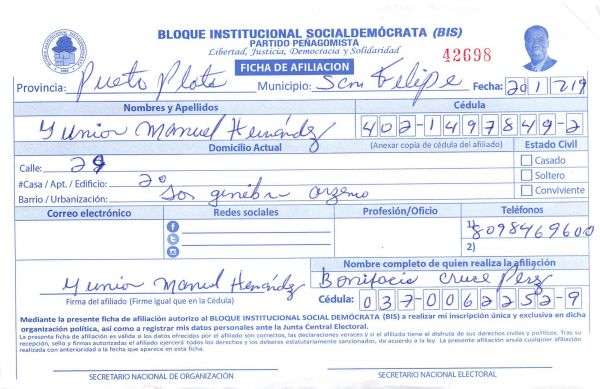 BLOQUE INSTITUCIONAL SOCIALDEMÓCRATA (BIS)
PARTIDO PEÑAGOMISTA
Libertad, Justicia, Democracia y Solidaridad
42698
FICHA DE AFILIACION
Provincia: Pueto Plata Municipio: San Felipe Fecha:
Nombres y Apellidos Cédula
Yunior Manuel Hernández 402-1497849-2
Domicilio Actual (Anexar copia de cédula del afiliado) Estado Civil
Calle: 29 Casado
#Casa / Apt. / Edificio: 20 Soltero
Barrio / Urbanización: Sos ginebra Conviviente
Correo electrónico Redes sociales Profesión/Oficio Teléfonos
1) 8098469600
2)
Nombre completo de quien realiza la afiliación
Yunior Manuel Hernández Bonifacio Cruce Perez
Firma del afiliado (Firme igual que en la Cédula) Cédula: 037-0062252-9
Mediante la presente ficha de afiliación autorizo al BLOQUE INSTITUCIONAL SOCIAL DEMÓCRATA (BIS) a realizar mi inscripción única y exclusiva en dicha
organización política, así como a registrar mis datos personales ante la Junta Central Electoral.
La presente ficha de afiliación es válida si los datos ofrecidos por el afiliado son correctos, las declaraciones veraces y si el afiliado tiene el disfrute de sus derechos civiles y políticos. Tras su
recepción, sello y firmas autorizadas el afiliado ejercerá todos los derechos y los deberes estatutariamente sancionados, de acuerdo a la ley. La presente afiliación anula cualquier afiliación
realizada con anterioridad a la fecha que aparece en esta ficha.
SECRETARIO NACIONAL DE ORGANIZACIÓN SECRETARIO NACIONAL ELECTORAL